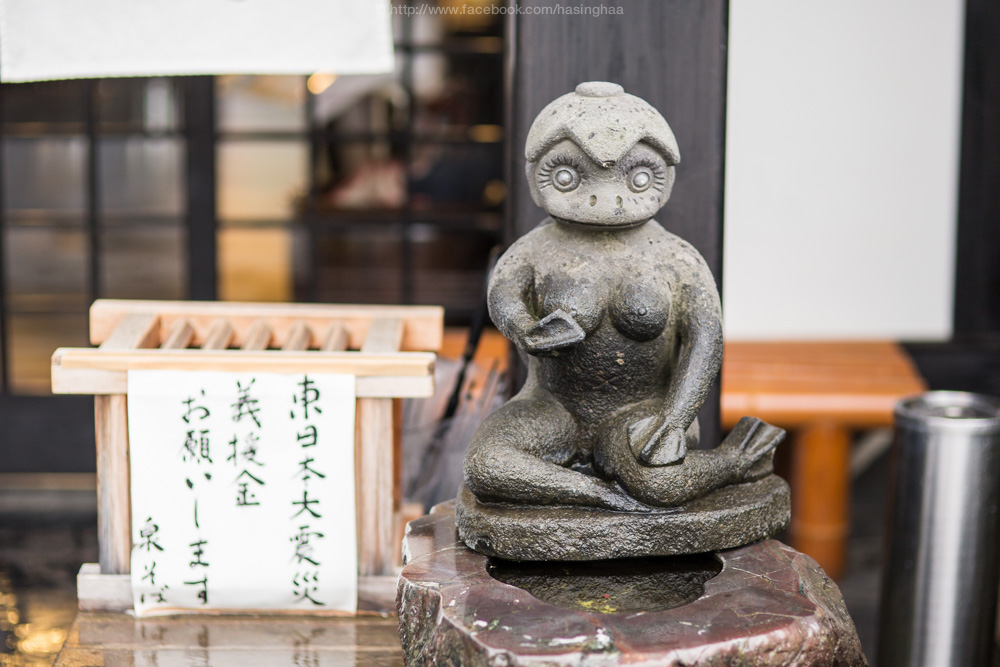 http://www.facebook.com/hasinghaa
東日本大震災
義援金
お願いします
泉そば